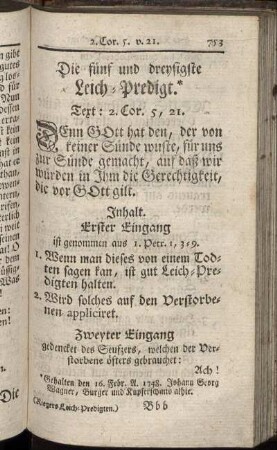 2. Cor. 5. v. 21. 753
Die fünf und dreysigste
Leich-Predigt.*
Text: 2. Cor. 5, 21.
DEnn GOtt hat den, der von
keiner Sünde wuste, für uns
zur Sünde gemacht, auf daß wir
würden in Ihm die Gerechtigkeit,
die vor GOtt gilt.
Inhalt.
Erster Eingang
ist genommen aus 1. Petr. 1, 3\9.
1. Wenn man dieses von einem Tod-
ten sagen kan, ist gut Leich-Pre-
digten halten.
2. Wird solches auf den Verstorbe-
nen appliciret.
Zweyter Eingang
gedencket des Seufzers, welchen der Ver-
storbene öfters gebrauchet:
Ach!
* Gehalten den 16. Febr. A. 1748. Johann Georg
Wagner, Burger und Kupferschmis alhie.
(Riegers Leich-Predigten.) Bbb
Die